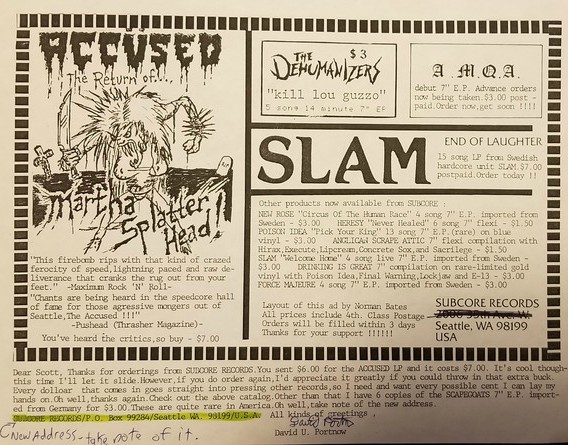 ACCÜSED
The Return of...
Martha
Splatter
Head!!
"This firebomb rips with that kind of crazed
ferocity of speed,lightning paced and raw de-
liverance that cranks the rug out from your
feet." -Maximum Rock 'N' Roll-
"Chants are being heard in the speedcore hall
of fame for those agressive mongers out of
Seattle,The Accused !!!"
-Pushead (Thrasher Magazine)-
You've heard the critics,so buy - $7.00
THE DEHUMANIZERS $3
"kill lou guzzo"
5 song 14 minute 7" EP
A.M.Q.A.
debut 7" E.P. Advance orders
now being taken.$3.00 post -
paid.Order now,get soon !!!!
SLAM
END OF LAUGHTER
15 song LP from Swedish
hardcore unit SLAM.$7.00
postpaid.Order today !!
Other products now available from SUBCORE :
NEW ROSE "Circus Of The Human Race" 4 song 7" E.P. imported from
Sweden - $3.00 HERESY "Never Healed" 6 song 7" flexi - $1.50
POISON IDEA "Pick Your King" 13 song 7" E.P.(rare) on blue
vinyl - $3.00 ANGLICAN SCRAPE ATTIC 7" flexi compilation with
Hirax,Execute,Lipcream,Concrete Sox,and Sacrilege - $1.50
SLAM "Welcome Home" 4 song live 7" E.P. imported from Sweden -
$3.00 DRINKING IS GREAT 7" compilation on rare-limited gold
vinyl with Poison Idea,Final Warning,Lockjaw and E-13 - $3.00
FORCE MAJEURE 4 song 7" E.P. imported from Sweden - $3.00
Layout of this ad by Norman Bates
All prices include 4th. Class Postage
Orders will be filled within 3 days
Thanks for your support !!!!!!!
SUBCORE RECORDS
2606 38th Ave. W.
Seattle, WA 98199
USA
Dear Scott, Thanks for orderings from SUBCORE RECORDS.You sent $6.00 for the ACCUSED LP and it costs $7.00. It's cool though-
this time I'll let it slide.However,if you do order again,I'd appreciate it greatly if you could throw in that extra buck.
Every dolloar that comes in goes straight into pressing other records,so I need and want every possible cent I can lay my
hands on.Oh well,thanks again.Check out the above catalog.Other than that I have 6 copies of the SCAPEGOATS 7" E.P. import-
ed from Germany for $3.00.These are quite rare in America.Oh well,take note of the new address.
SUBCORE RECORDS/P.O. Box 99284/Seattle WA. 98199/U.S.A. All kinds of greetings ,
New Address - take note of it.
David U. Portnow